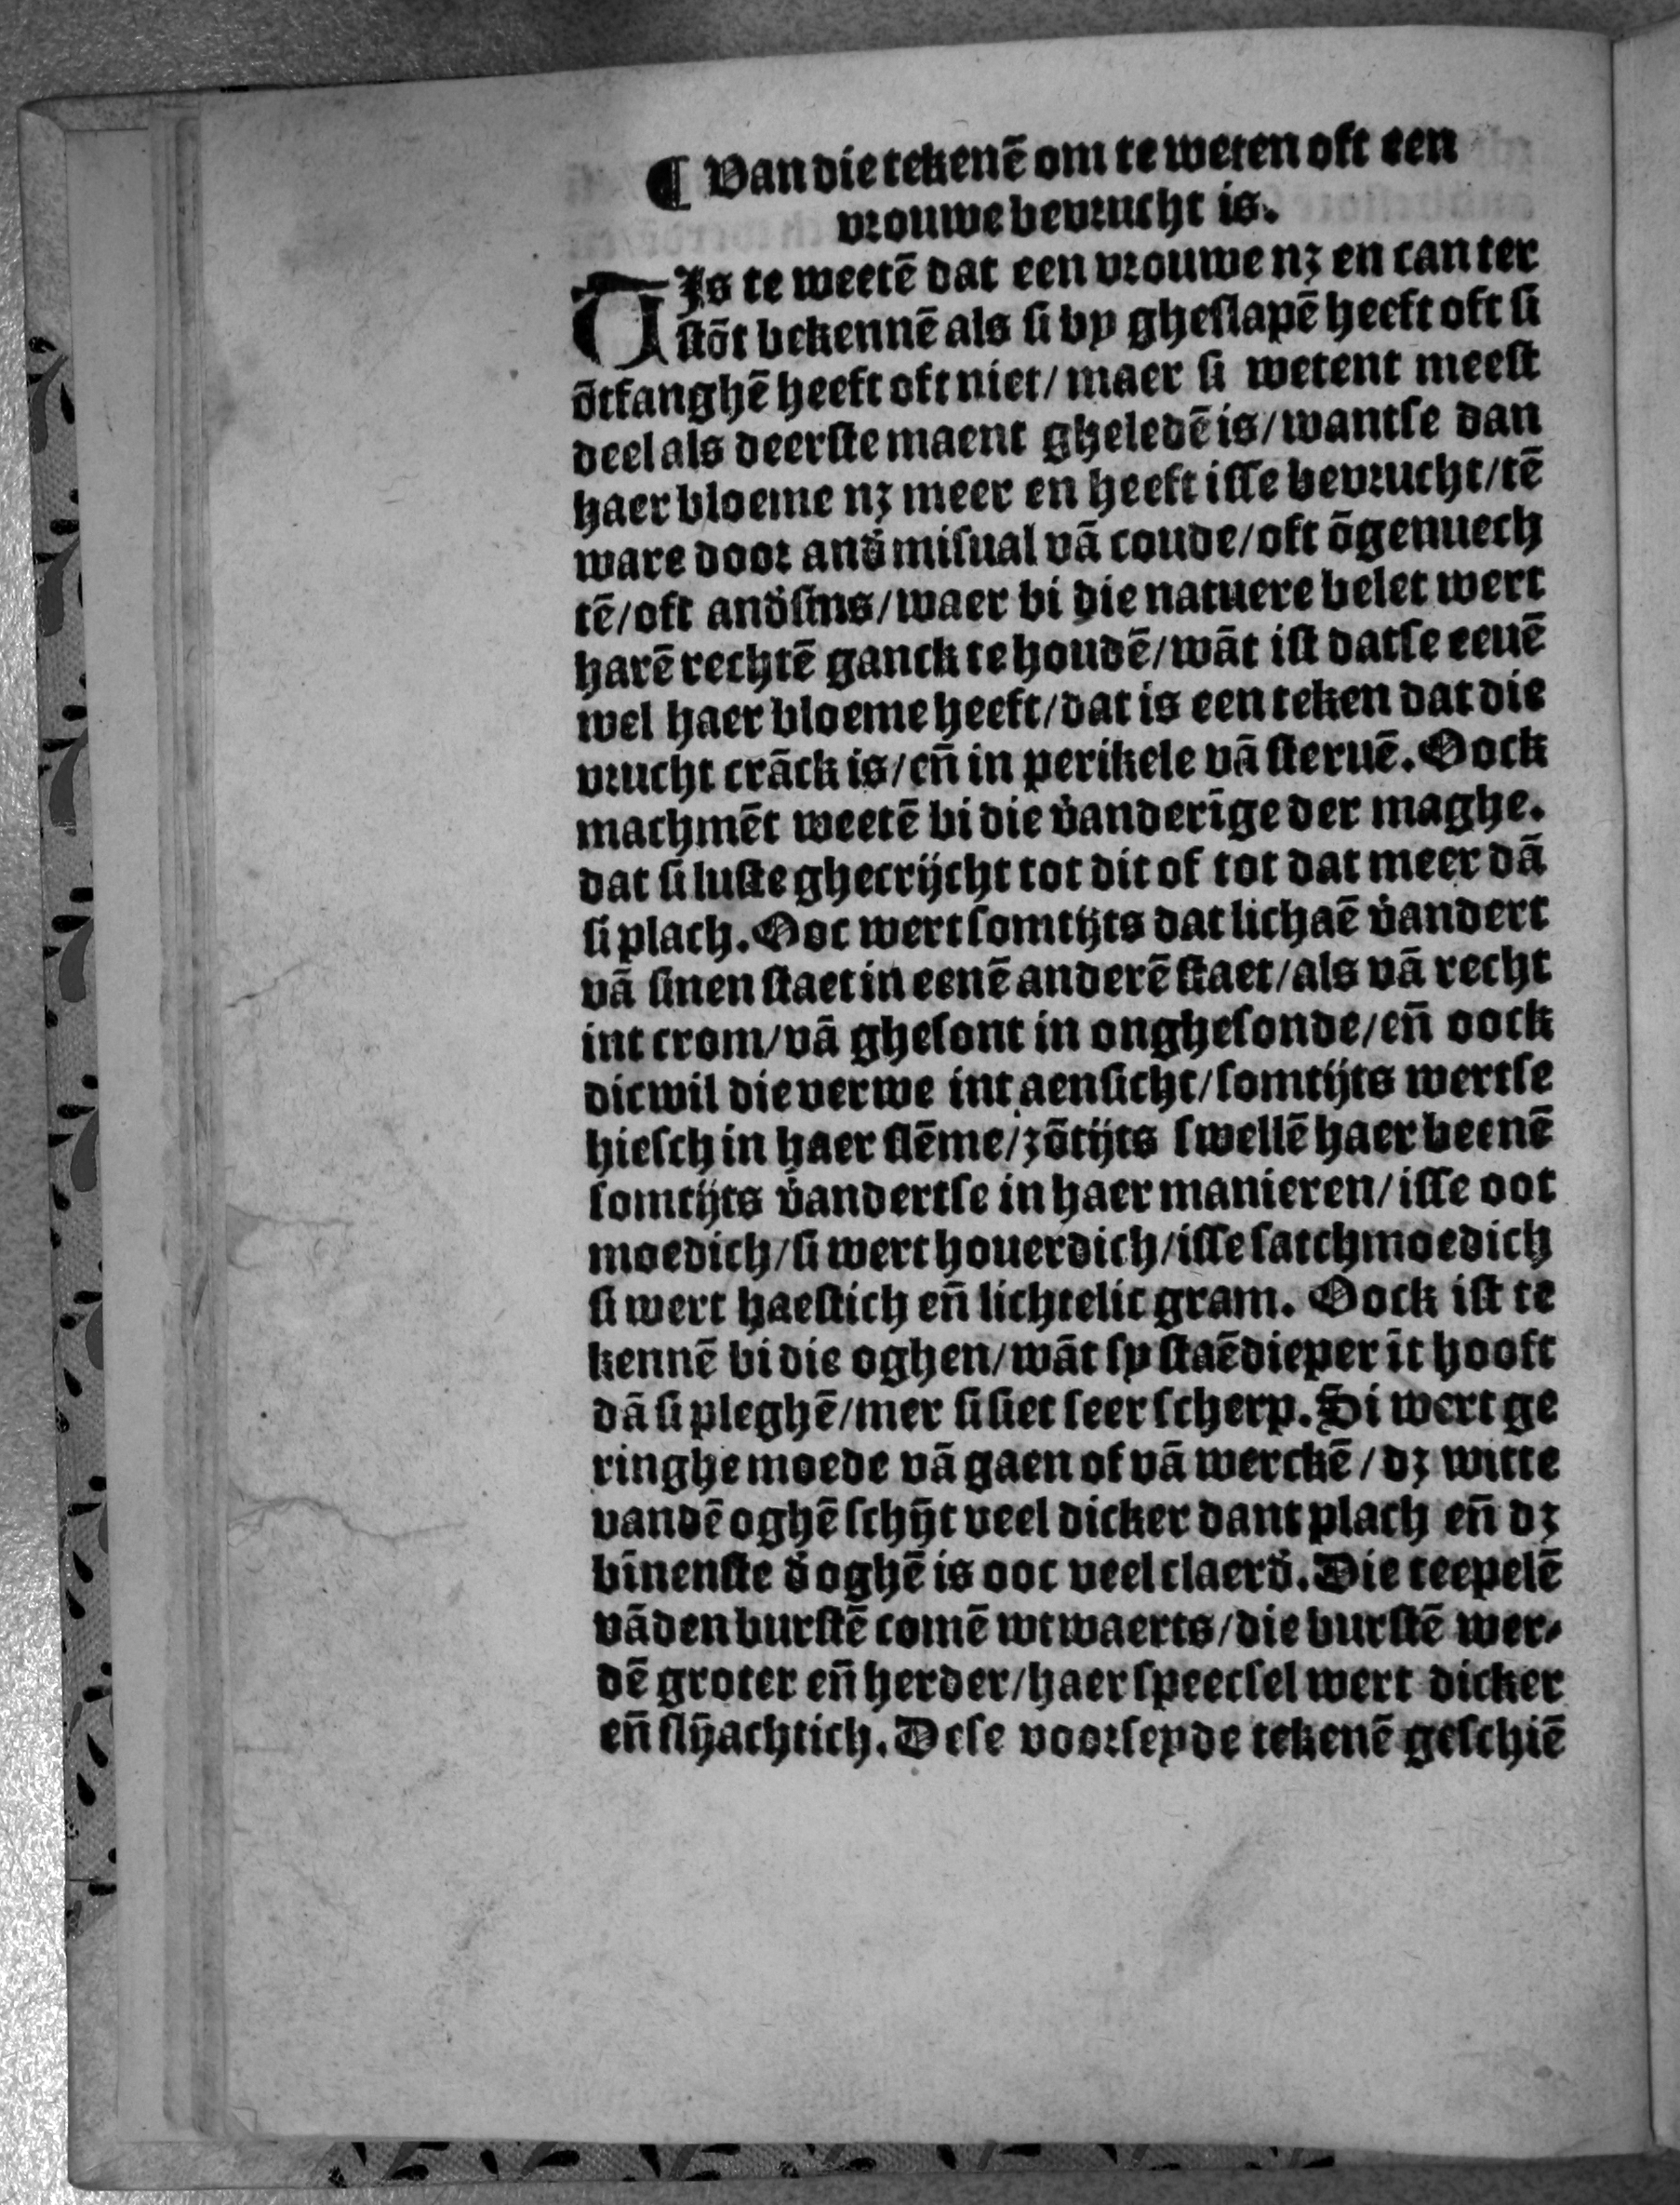 ¶ Van die tekenē om te weten oft een
vrouwe bevrucht is.
TIs te weetē dat een vrouwe nʒ en can ter
ſtōt bekennē als ſi by gheſlapē heeft oft ſi
ōtfanghē heeft oft niet/ maer ſi wetent meeſt
deel als deerſte maent gheledē is/ wantſe dan
haer bloeme nʒ meer en heeft iſſe bevrucht/ tē
ware door and̛ miſual vā coude/ oft ōgenuech
tē/ oft and̛ſins/ waer bi die natuere belet wert
harē rechtē ganck te houdē/ wāt iſt datſe eeuē
wel haer bloeme heeft/ dat is een teken dat die
vrucht crāck is/ en̄ in perikele vā ſteruē. Oock
machmēt weetē bi die v̛anderīge der maghe.
dat ſi luſte ghecrijcht tot dit of tot dat meer dā
ſi plach. Ooc wert ſomtijts dat lichaē v̛andert
vā ſinen ſtaet in eenē anderē ſtaet/ als vā recht
int crom/ vā gheſont in ongheſonde/ en̄ oock
dicwil die verwe int aenſicht/ ſomtijts wertſe
hieſch in haer ſtēme/ ʒōtijts ſwellē haer beenē
ſomtijts v̛andertſe in haer manieren/ iſſe oot
moedich/ ſi wert houerdich/ iſſe ſatchmoedich
ſi wert haeſtich en̄ lichtelic gram. Oock iſt te
kennē bi die oghen/ wāt ſy ſtaē dieper īt hooft
dā ſi pleghē/ mer ſi ſiet ſeer ſcherp. Si wert ge
ringhe moede vā gaen of vā werckē/ dʒ witte
vandē oghē ſchijt veel dicker dant plach en̄ dʒ
bīnenſte d̛ oghē is ooc veel claerd̛. Die teepelē
vāden burſtē comē wtwaerts/ die burſtē wer⸗
dē groter en̄ herder/ haer ſpeecſel wert dicker
en̄ ſlijachtich. Deſe voorſeyde tekenē geſchiē